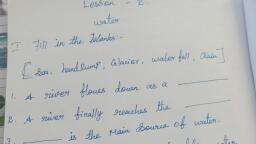 Lesson - 2
water
I Fill in the blanks:-
[Sea, handpump, Glacier, water fall, Rain]
1. A river flows down as a ______
2. A river finally reaches the ______
3. ______ is the main source of water.
water